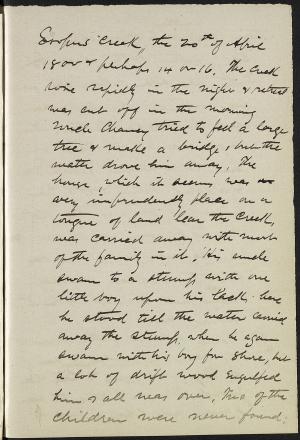 Esopus Creek, the 20th of April
18oo & perhaps 14 or 16. The Creek
rose rapidly in the night & retreat
was cut off in the morning
Uncle Chancy tried to fell a large
tree & make a bridge, but the
water drove him away. The
house, which it seems was
very imprudently place on a
tongue of land near the Creek,
was carried away with most
of the family in it. His uncle
swam to a stump, with one
little boy upon his back: here
he stood till the water carried
away the stump, when he again
swam with his boy for shore, but
a lot of drift wood engulfed
him & all was over, Two of the
children were never found;